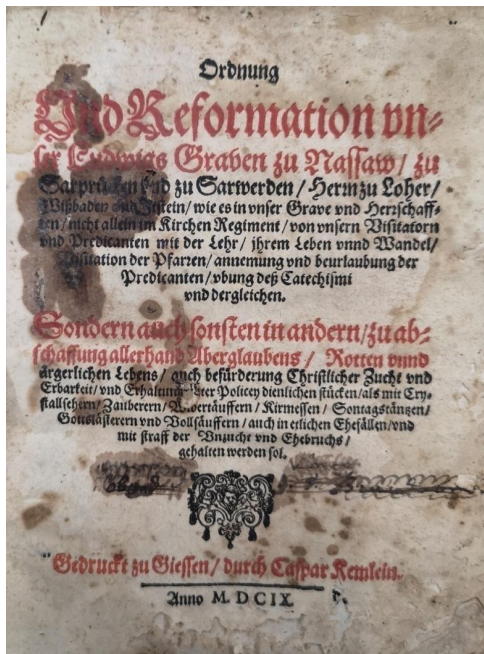 Ordnung
Und Reformation vn⸗
ser Ludwigs Graven zu Nassaw / zu
Sarprücken vnd zu Sarwerden / Herrn zu Loher /
Wißbaden vnd Itzstein / wie es in vnser Grave vnd Herrschaff⸗
ten / nicht allein im Kirchen Regiment / von vnsern Visitatorn
vnd Predicanten mit der Lehr / ihrem Leben vnnd Wandel /
Visitation der Pfarren / annemung vnd beurlaubung der
Predicanten / vbung deß Catechismi
vnd dergleichen.
Sondern auch sonsten in andern / zu ab⸗
schaffung allerhand Aberglaubens / Rotten vnnd
ärgerlichen Lebens / auch befürderung Christlicher Zucht vnd
Erbarkeit / vnd Erhaltung guter Policey dienlichen stücken / als mit Cry⸗
stallsehern / Zauberern / Widertäuffern / Kirmessen / Sontagstäntzen /
Gottslästerern vnd Vollsäuffern / auch in etlichen Ehefällen / vnd
mit straff der Vnzucht vnd Ehebruchs /
gehalten werden sol.
Gedruckt zu Giessen / durch Caspar Kemlein.
Anno M. DCIX